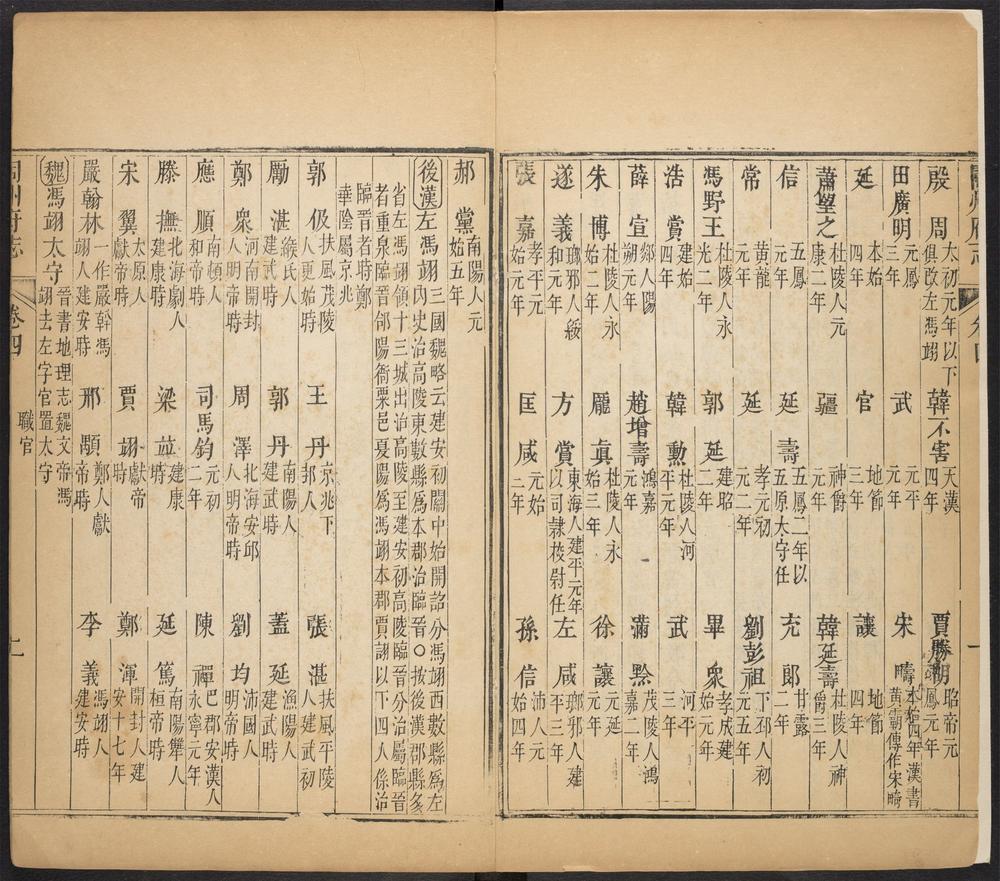 殷周 太初元年以下俱改左馮翊 韓不害 天漢四年 賈勝胡 昭帝元鳳元年
田廣明 元鳳三年 武 元平元年 宋疇 本始四年漢書黃霸傳作宋畸
延 本始四年 官 地節三年 讓 地節四年
蕭望之 杜陵人元康二年 彊 神爵元年 韓延壽 杜陵人神爵三年
信 五鳳元年 延壽 五鳳二年以五原太守任 充郎 甘露二年
常 黃龍元年 延 孝元初元二年 劉彭祖 下邳人初元五年
馮野王 杜陵人永光二年 郭延 建昭二年 畢衆 孝成建始元年
浩賞 建始四年 韓勲 杜陵人河平元年 武 河平三年
薛宣 郯人陽朔元年 趙增壽 鴻嘉元年 滿黔 茂陵人鴻嘉二年
朱博 杜陵人永始二年 龐眞 杜陵人永始三年 徐讓 元延元年
遂義 瑯邪人綏和元年 方賞 東海人建平元年以司隸校尉任 左咸 瑯邪人建平三年
張嘉 孝平元始元年 匡咸 元始二年 孫信 沛人元始四年
郝黨 南陽人元始五年
後漢左馮翊 三國魏略云建安初關中始開詔分馮翊西數縣爲左內史治高陵東數縣爲本郡治臨晉○按後漢郡縣
省左馮翊領十三城出治高陵至建安初高陵臨晉分治屬臨晉者重泉臨晉郃陽衙粟邑夏陽爲馮翊本郡賈詡以下四人係治
臨晉者時鄭華陰屬京兆
郭伋 扶風茂陵人更始時 王丹 京兆下邽人 張湛 扶風平陵人建武初
勵湛 緱氏人建武時 郭丹 南陽人建武時 蓋延 漁陽人建武時
鄭衆 河南開封人明帝時 周澤 北海安邱人明帝時 劉均 沛國人明帝時
應順 南頓人和帝時 司馬鈞 元初二年 陳禪 巴郡安漢人永寧元年
滕撫 北海劇人建康時 梁並 建康時 延篤 南陽犨人桓帝時
宋翼 太原人獻帝時 賈詡 獻帝時 鄭渾 開封人建安十七年
嚴翰林 一作嚴幹馮翊人建安時 邢顒 鄭人獻帝時 李義 馮翊人建安時
魏馮翊太守 晉書地理志魏文帝馮翊去左字官置太守
同州府志 卷四 職官 上